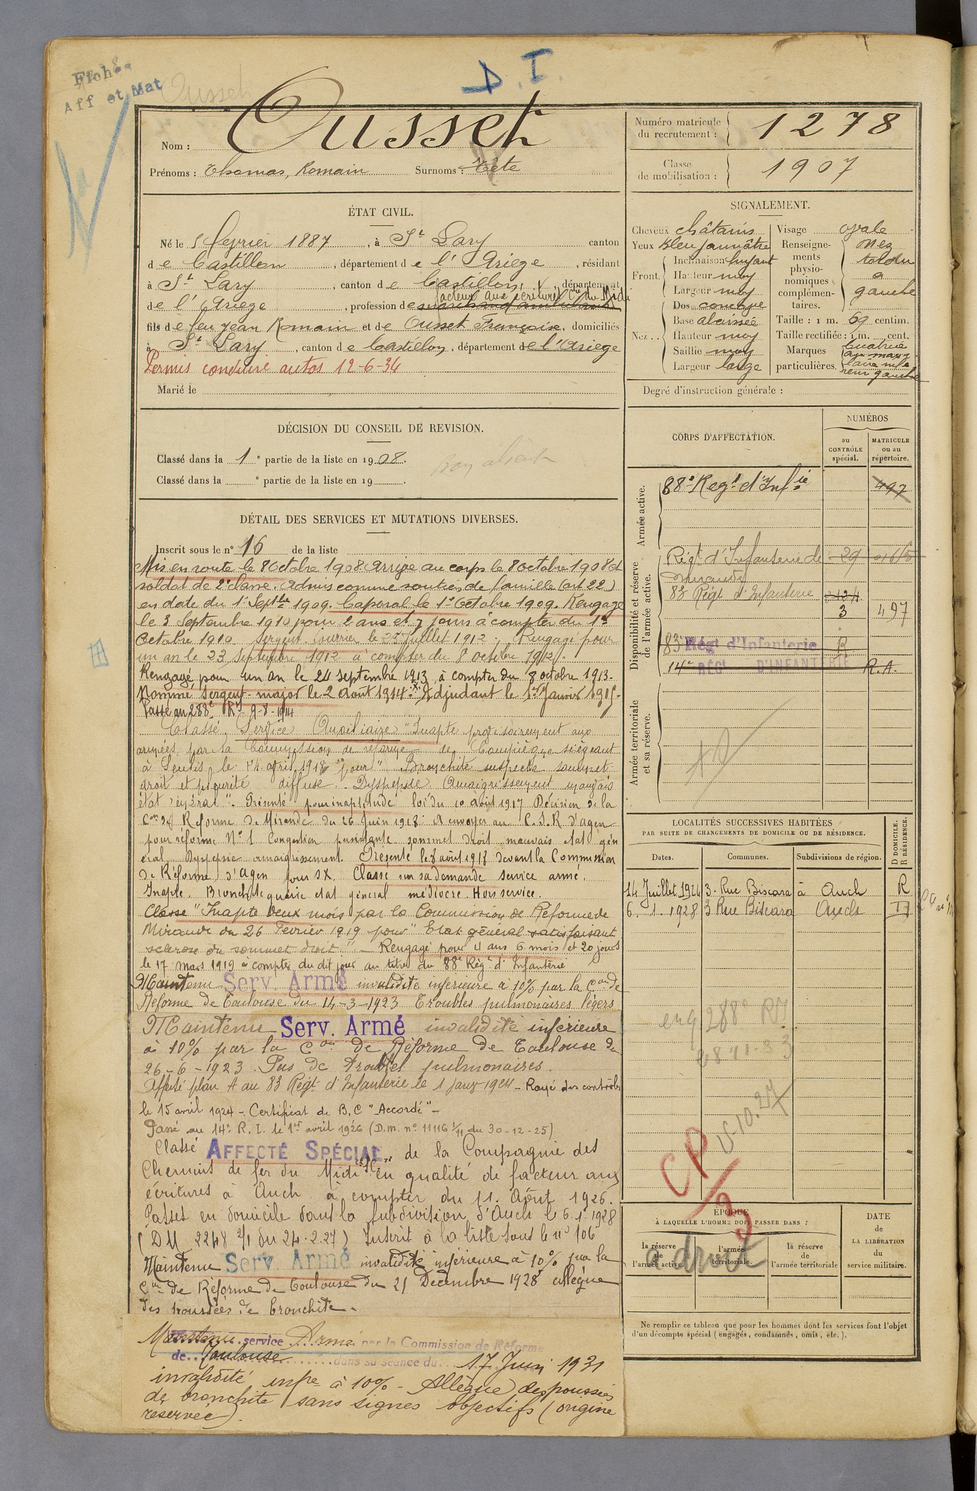 Fiches
Aff et Mat
D. I.
Nom : Ousset
Prénoms : Thomas, Romain Surnoms : Tète
ÉTAT CIVIL.
Né le 5 février 1887, à St Lary canton
de Castillon, département de l'Ariège, résidant
à St Lary, canton de Castillon, département
facteur aux écritures Cie du Midi
de l'Ariège, profession de marchand ambulant
fils de feu Jean Romain et de Ousset Françoise, domiciliés
à St Lary, canton de Castillon, département de l'Ariège
Permis conduire autos 12-6-34
Marié le
DÉCISION DU CONSEIL DE REVISION.
Classé dans la 1e partie de la liste en 1908.
Classé dans la e partie de la liste en 19
DÉTAIL DES SERVICES ET MUTATIONS DIVERSES.
Inscrit sous le n° 16 de la liste
Mis en route le 8 Octobre 1908 Arrivé au corps le 8 octobre 1908 et
soldat de 2e classe. Admis comme soutien de famille (art 22)
en date du 1er Septbre 1909. Caporal le 1er Octobre 1909. Rengagé
le 3 Septembre 1910 pour 2 ans et 7 jours à compter du 1er
Octobre 1910. Sergent fourrier le juillet 1912. Rengagé pour
un an le 23 septembre 1912 à compter du 8 octobre 1912.
Rengagé pour un an le 24 septembre 1913 à compter du 8 octobre 1913.
Nommé Sergent-major le 2 Août 1914. Adjudant le 1er Janvier 1915.
Passé au 288e RI 9-8-1914
Classé Service Auxiliaire "Inapte provisoirement aux
armées" par la Commission de réforme de Compiègne siégeant
à Senlis le avril 1918 "pour" Bronchite suspecte sommet
droit et obscurité diffuse. Dyspepsie Amaigrissement mauvais
état général". Présenté pour inaptitude loi du 10 août 1917 Décision de la
Con de Réforme de Mirande du 26 Juin 1918 : A envoyer au C.S.R d'Agen
pour réforme N° 1 Congestion persistante sommet droit mauvais état gén
éral Dyspepsie amaigrissement. Présenté le 8 août 1918 devant la Commission
de Réforme d'Agen pour SX. Classé sur sa demande service armé.
Inapte. Bronchite guérie état général médiocre. Hors service.
Classé "Inapte deux mois par la Commission de Réforme de
Mirande du 26 Février 1919 pour "Etat général satisfaisant
sclérose du sommet droit" - Rengagé pour 4 ans 6 mois et 20 jours
le 17 mars 1919 à compter du dit jour au titre du 88e Rég. d'Infanterie
Maintenu Serv. Armé invalidité inférieure à 10% par la Con de
Réforme de Toulouse du 14-3-1923 Troubles pulmonaires légers
Maintenu Serv. Armé invalidité inférieure
à 10% par la Con de Réforme de Toulouse du
26-6-1923. Pas de troubles pulmonaires.
Affecté plan A au 83 Régt d'Infanterie le 1 janv 1924 - Rayé des contrôles
le 15 avril 1924 - Certificat de B.C "Accordé" -
Passé au 14e R.I. le 1er avril 1926 (D.m. n° 11116 1/11 du 30-12-25)
Classé AFFECTÉ SPÉCIAL de la Compagnie des
Chemins de fer du Midi en qualité de facteur aux
écritures à Auch à compter du 11 Août 1926.
Passe en domicile dans la subdivision d'Auch le 6.1.1928
(DM 2248 2/1 du 24-2-27) Inscrit à la liste sous le n° 106
Maintenu Serv. Armé invalidité inférieure à 10% par la
Con de Réforme de Toulouse du 21 Décembre 1928 allègue
des poussées de bronchite.
Maintenu service Armé par la Commission de Réforme
de Toulouse dans sa séance du 17 Juin 1931
invalidité infre à 10% - Allègue des poussées
de bronchite sans signes objectifs (origine
réservée).
Numéro matricule
du recrutement : 1278
Classe
de mobilisation : 1907
SIGNALEMENT.
Cheveux châtains
Yeux Bleu jaunâtre
Front. Inclinaison fuyant
Hauteur moy
Largeur moy
Nez... Dos concave
Base abaissée
Hauteur moy
Saillie moy
Largeur large
Visage ovale
Renseignements physionomiques complémentaires. nez
tordu
à
gauche
Taille : 1 m. 69 centim.
Taille rectifiée : 1 m. cent.
Marques particulières.
Degré d'instruction générale :
CORPS D'AFFECTATION.
NUMÉROS
au CONTRÔLE spécial.
MATRICULE ou au répertoire.
Armée active.
88e Regt d'Infie 497
Disponibilité et réserve de l'armée active.
Régt d'Infanterie de 29
Mirande
88 Régt d'Infanterie
3 497
83e Régt d'Infanterie R
14e RÉGt D'INFANTERIE R.A.
Armée territoriale et sa réserve.
LOCALITÉS SUCCESSIVES HABITÉES
PAR SUITE DE CHANGEMENTS DE DOMICILE OU DE RÉSIDENCE.
Dates. Communes. Subdivisions de région. D DOMICILE. R RÉSIDENCE.
14 Juillet 1924 3. Rue Biscara à Auch R
6. 1. 1928 3 Rue Biscara Auch D
288e RI
15.10.27
CP/9
ÉPOQUE
À LAQUELLE L'HOMME DOIT PASSER DANS :
la réserve de l'armée active
l'armée territoriale.
la réserve de l'armée territoriale
DATE de LA LIBÉRATION du service militaire.
à droit
Ne remplir ce tableau que pour les hommes dont les services font l'objet
d'un décompte spécial (engagés, condamnés, omis, etc.).